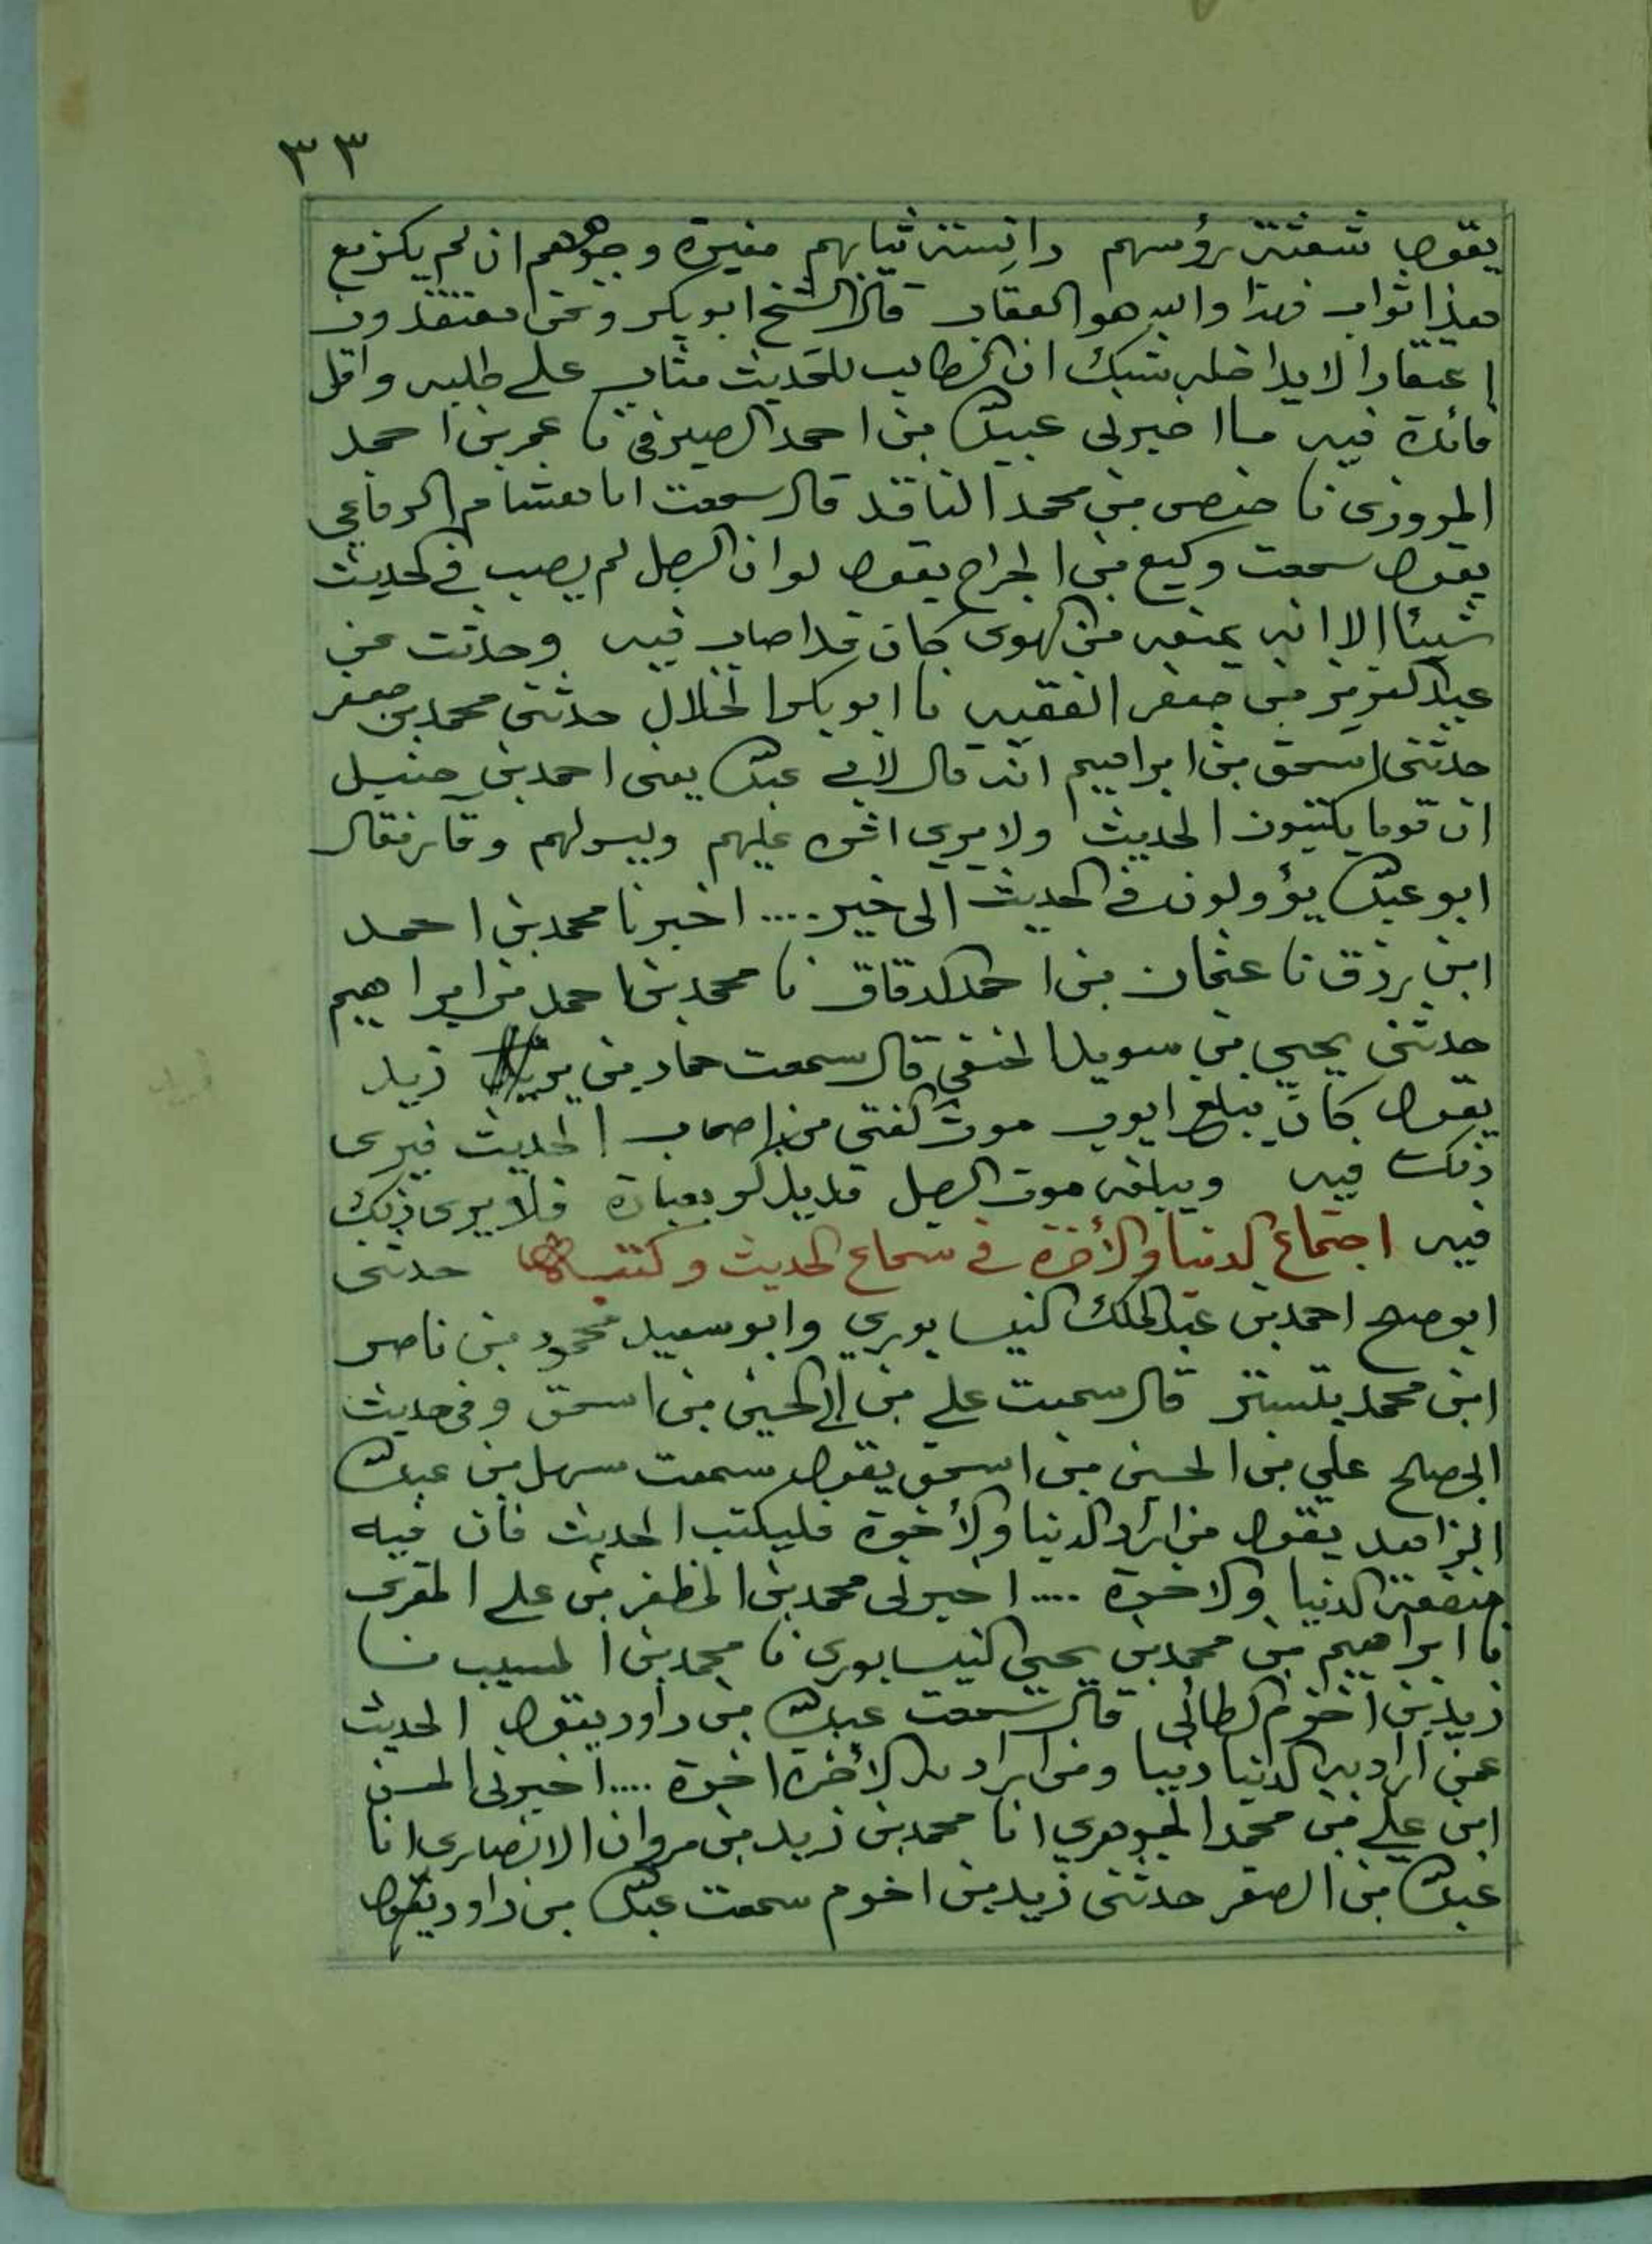 ٣٣
يقول شعثة رؤسهم دانسة ثيابهم مغيرة وجوههم ان لم يكن مع
هذا ثواب فهذا والله هو العقاب قال الشيخ ابو بكر ونحن معتقدون
اعتقادا لا يداخله شك ان الطالب للحديث مثاب على طلبه واقل
فائدة فيه ما اخبرنى عبيد الله بن احمد الصيرفى نا عمر بن احمد
المروزى نا حفص بن محمد الناقد قال سمعت ابا هشام الرفاعي
يقول سمعت وكيع بن الجراح يقول لو ان الرجل لم يصب في الحديث
شيئا الا انه يمنعه من الهوى كان قد اصاب فيه وحدثت عن
عبد العزيز بن جعفر الفقيه نا ابو بكر الخلال حدثني محمد بن جعفر
حدثني اسحق بن ابراهيم انه قال لابي عبد الله يعنى احمد بن حنبل
ان قوما يكتبون الحديث ولا يرى اثره عليهم وليس لهم وقار فقال
ابو عبد الله يؤولون في الحديث الى خير .... اخبرنا محمد بن احمد
ابن رزق نا عثمان بن احمد الدقاق نا محمد بن احمد بن ابراهيم
حدثني يحيى بن سويد الحنفي قال سمعت حماد بن زيد
يقول كان يبلغ ايوب موت الفتى من اصحاب الحديث فيرى
ذلك فيه ويبلغه موت الرجل قد يذكر بعبادة فلا يرى ذلك
فيه اجتماع الدنيا والأخرة في سماع الحديث وكتبه حدثنى
ابو صلح احمد بن عبد الملك النيسابوري وابو سعيد محمود بن ناصر
ابن محمد بتستر قال سمعت على بن الحسين بن اسحق وفى حديث
ابى صلح علي بن الحسين بن اسحق يقول سمعت سهل بن عبد الله
الزاهد يقول من اراد الدنيا والأخرة فليكتب الحديث فان فيه
منفعة الدنيا والاخرة .... اخبرنى محمد بن المظفر بن على المقرى
نا ابراهيم بن محمد بن يحيى النيسابورى نا محمد بن المسيب نا
زيد بن اخزم الطائى قال سمعت عبد الله بن داود يقول الحديث
عمن اراد به الدنيا دنيا ومن اراد به الأخرة اخرة .... اخبرنى الحسن
ابن على بن محمد الجوهري انا محمد بن زيد بن مروان الانصارى انا
عبد الله بن الصقر حدثنى زيد بن اخزم سمعت عبد الله بن داود يقول